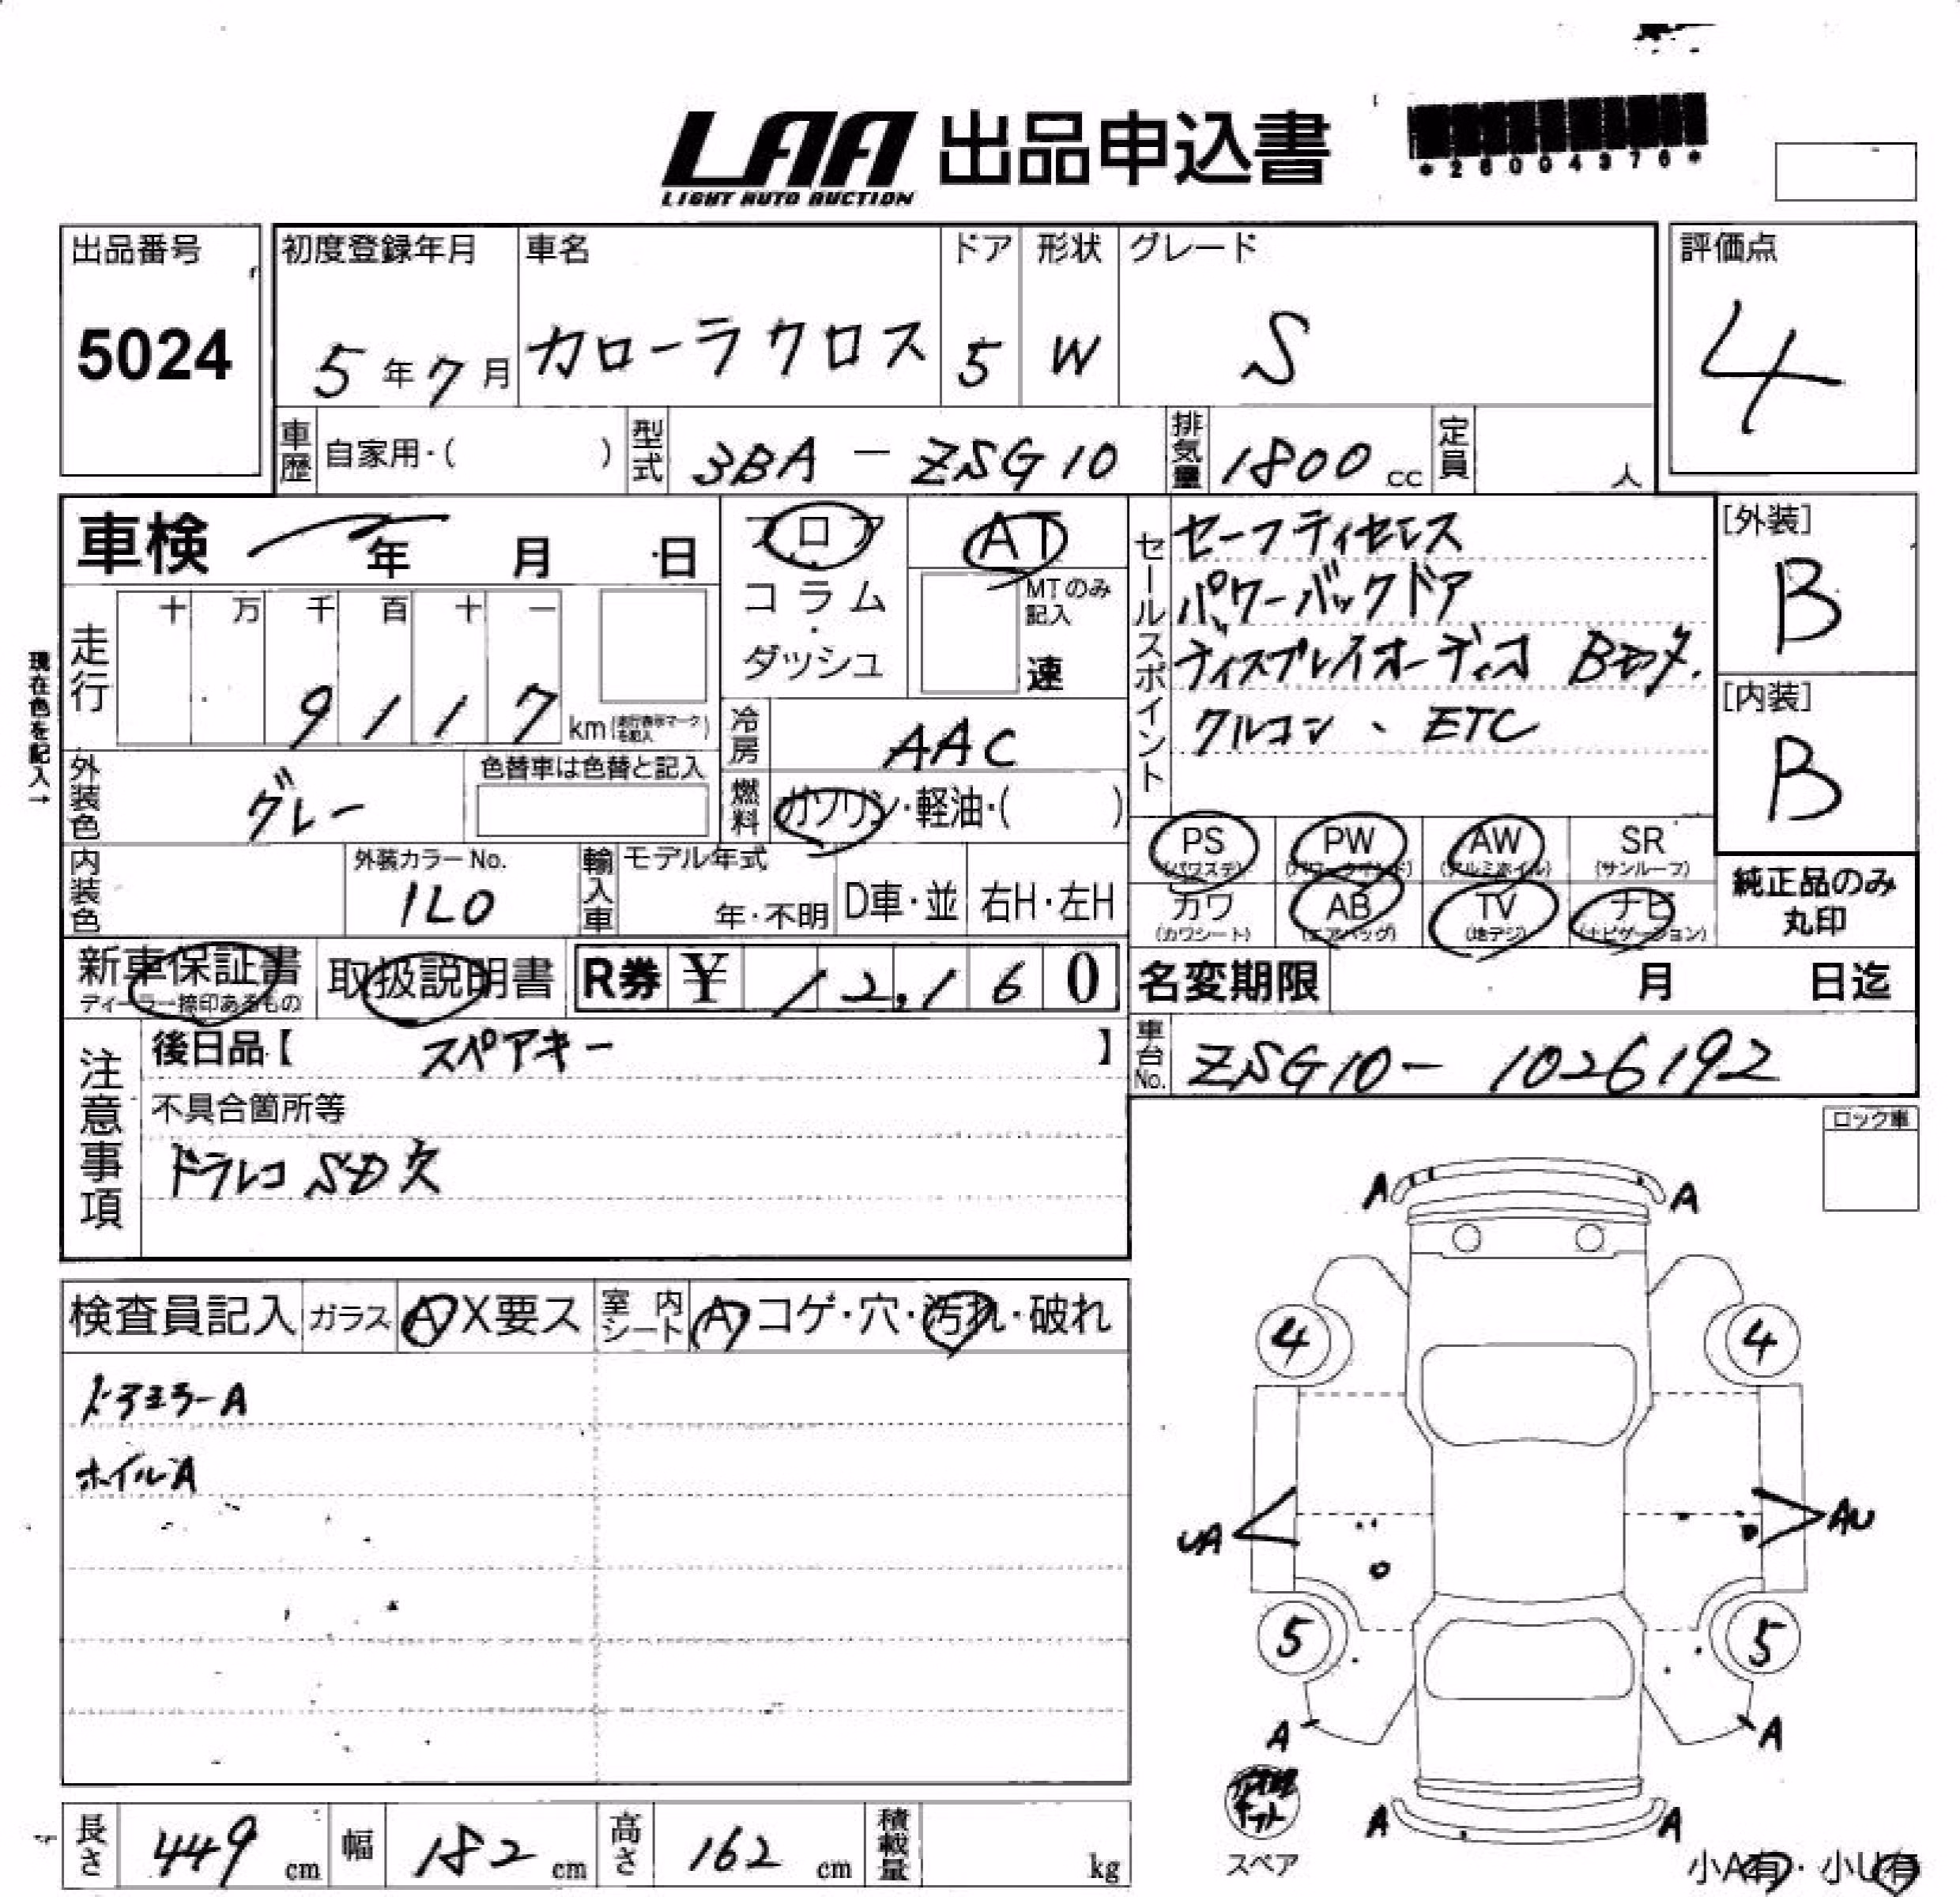 LAA 出品申込書
LIGHT AUTO AUCTION
*26004376*
出品番号
5024
初度登録年月
5年7月
車名
カローラクロス
ドア
5
形状
W
グレード
S
評価点
4
車歴 自家用・( )
型式 3BA-ZSG10
排気量 1800cc
定員 人
車検 年 月 日
フロア・コラム・ダッシュ
AT
MTのみ記入
速
セールスポイント
セーフティセンス
パワーバックドア
ディスプレイオーディオ Bモタ.
クルコン、ETC
[外装]
B
[内装]
B
現在色を記入→
走行 十 万 千 百 十 一
9117 km(走行表示マークを記入)
冷房 AAC
外装色 グレー
色替車は色替と記入
燃料 ガソリン・軽油・( )
内装色
外装カラーNo.
1L0
輸入車 モデル年式
年・不明 D車・並 右H・左H
PS (パワステ) PW (パワーウインド) AW (アルミホイル) SR (サンルーフ)
カワ (カワシート) AB (エアバッグ) TV (地デジ) ナビ (ナビゲーション)
純正品のみ丸印
新車保証書 取扱説明書 R券 ¥ 12,160
ディーラー捺印あるもの
名変期限 月 日迄
車台No. ZSG10-1026192
注意事項
後日品【 スペアキー 】
不具合箇所等
ドラレコ SD欠
ロック車
検査員記入 ガラス A X要ス 室内シート A コゲ・穴・汚れ・破れ
ドアミラーA
ホイルA
A A
4 4
UA AU
5 5
A A
A A
スペア
小A有・小U有
長さ 449cm 幅 182cm 高さ 162cm 積載量 kg